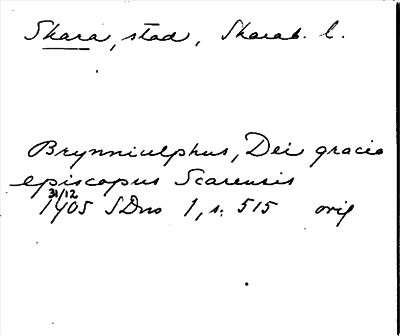 Skara, stad, Skarab. l.
Brynniulphus, Dei gracia
episcopus Scarensis
31/12
1405 SDns 1, s. 515 orig